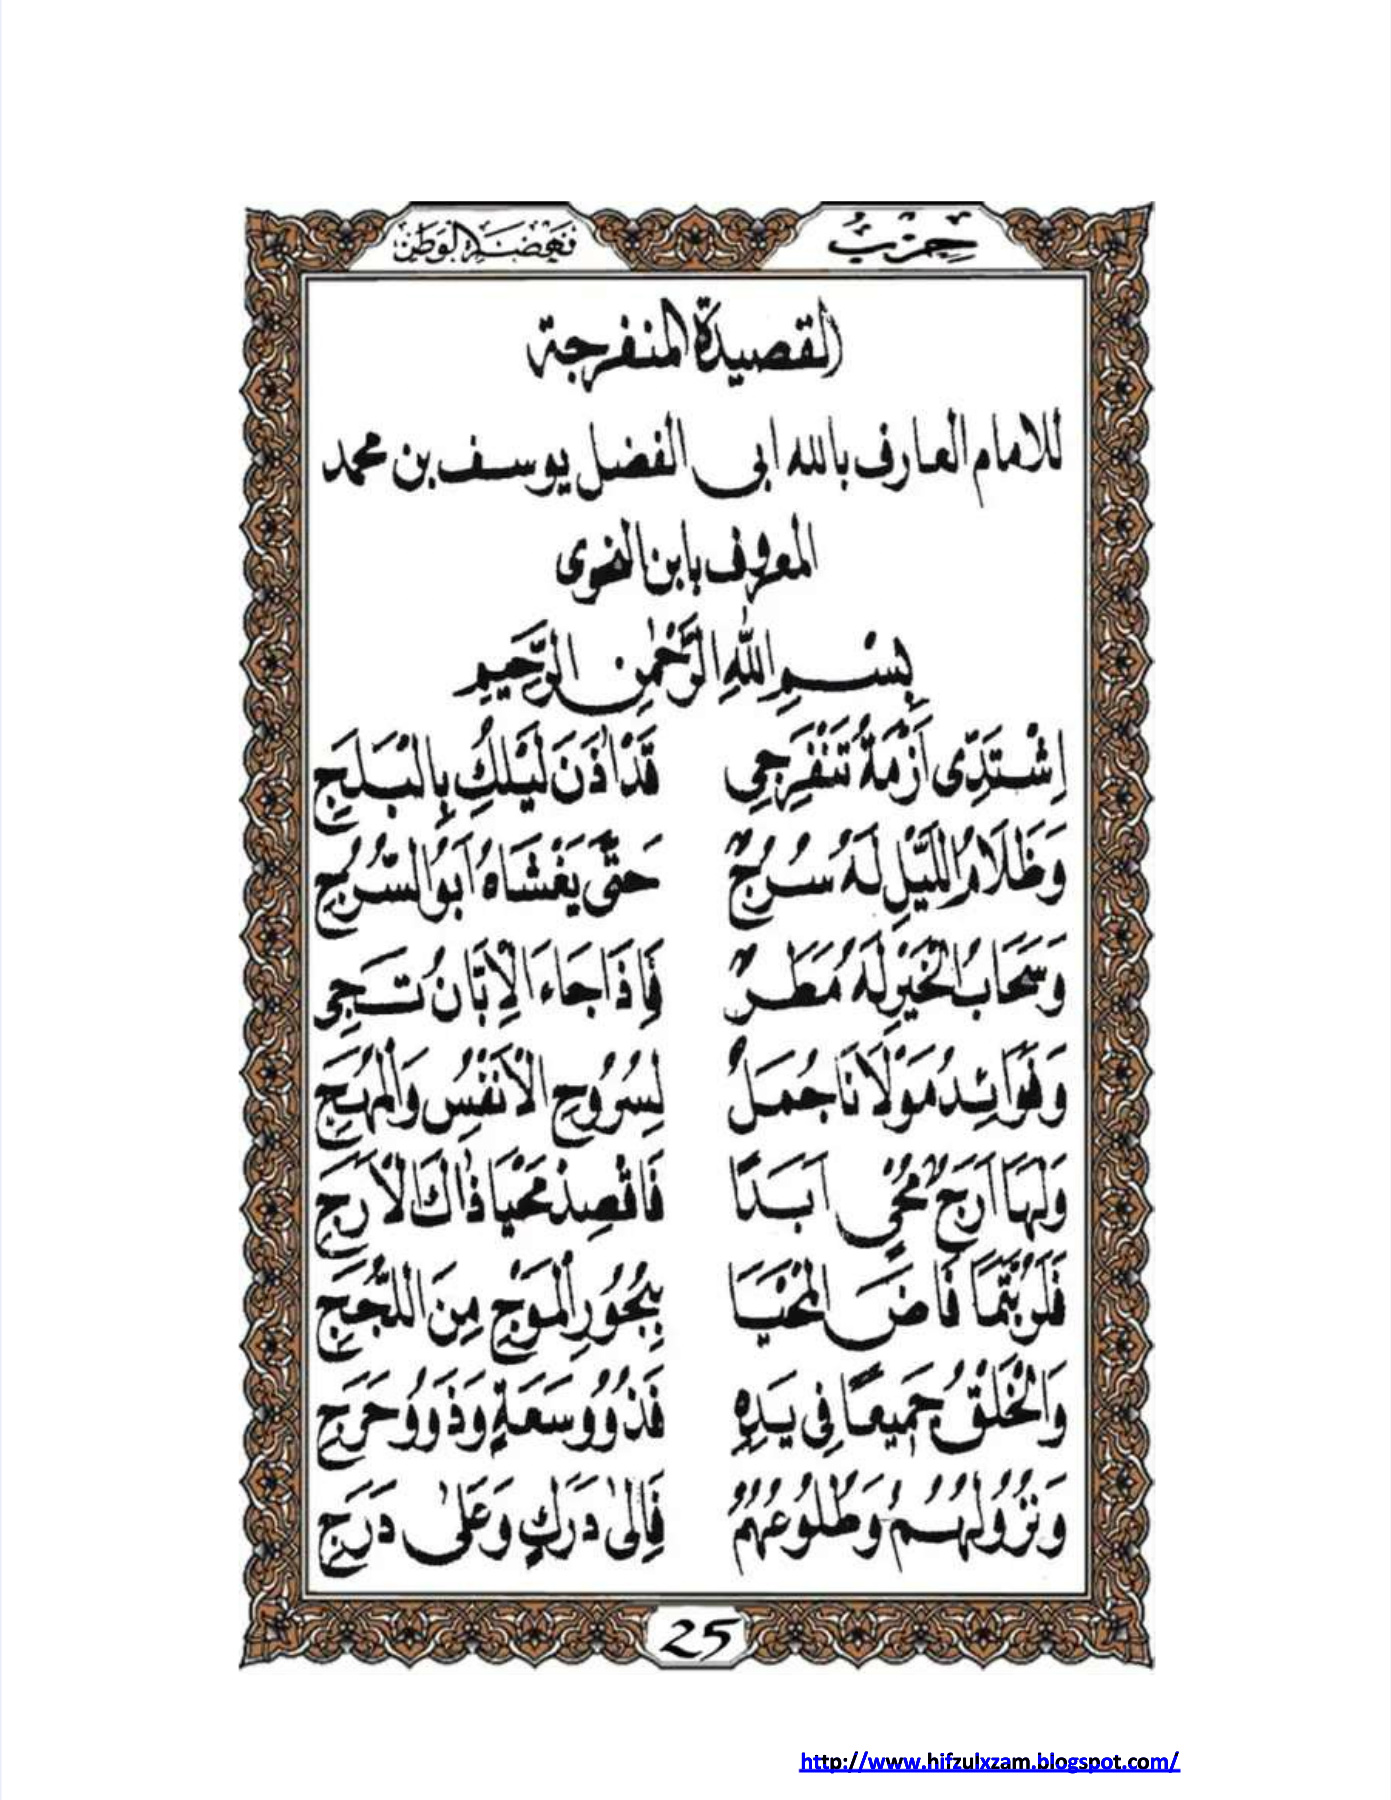 حِزْبُ نَهْضَةِ الْوَطَنْ
القصيدة المنفرجة
للامام العارف بالله ابى الفضل يوسف بن محمد
المعروف بابن النحوى
بِسْمِ اللهِ الرَّحْمٰنِ الرَّحِيمِ
اِشْتَدِّى اَزْمَةُ تَنْفَرِجِى قَدْ اٰذَنَ لَيْلُكِ بِالْبَلَجِ
وَظَلَامُ اللَّيْلِ لَهُ سُرُجٌ حَتَّى يَغْشَاهُ اَبُو السُّرُجِ
وَسَحَابُ الْخَيْرِ لَهُ مَطَرٌ فَاِذَا جَاءَ الْاِبَّانُ تَجِى
وَفَوَائِدُ مَوْلَانَا جُمَلٌ لِسُرُوحِ الْاَنْفُسِ وَالْمُهَجِ
وَلَهَا اَرَجٌ مُحْىٍ اَبَدًا فَاقْصِدْ مَحْيَا ذَاكَ الْاَرَجِ
فَلَرُبَّتَمَا فَاضَ الْمَحْيَا بِبُحُورِ الْمَوْجِ مِنَ اللُّجَجِ
وَالْخَلْقُ جَمِيعًا فِى يَدِهِ فَذُوُو سَعَةٍ وَذَوُو حَرَجِ
وَنُزُولُهُمُ وَطُلُوعُهُمُ فَاِلٰى دَرَكٍ وَعَلٰى دَرَجِ
25
http://www.hifzulxzam.blogspot.com/